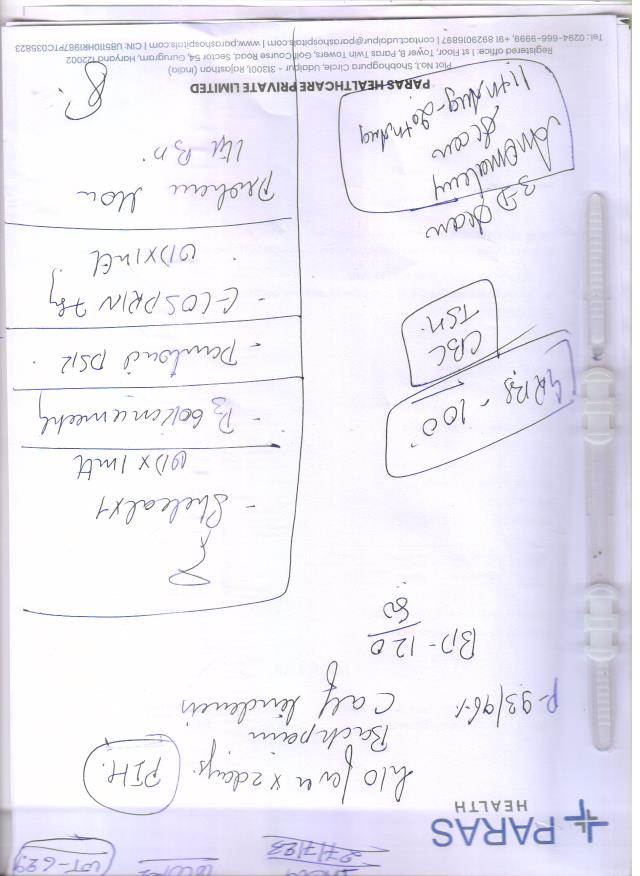 27/7/23
WT-629
PARAS
HEALTH
h/o fever x 2 days.
PIH.
Back pain
Calf tenderness
P-93/96%
BP-120
80
- Shelcal XT
OD x 1 mth
GRBS - 100
- D3 60K once weekly
CBC
TSH.
- Pantocid DSR
- ECOSPRIN 75mg
OD x 1 mth
3D Scan
Anomaly
Scan
11th Aug - 20th Aug
PARAS HEALTHCARE PRIVATE LIMITED
Plot No.1, Shobhagpura Circle, Udaipur - 313001, Rajasthan (India)
Registered office: 1 st Floor, Tower B, Paras Twin Towers, Golf Course Road, Sector 54, Gurugram, Haryana 122002
Tel.: 0294-666-9999, +91 8092916897 | contact.udaipur@parashospitals.com | www.parashospitals.com | CIN: U85110HR1987PTC035823